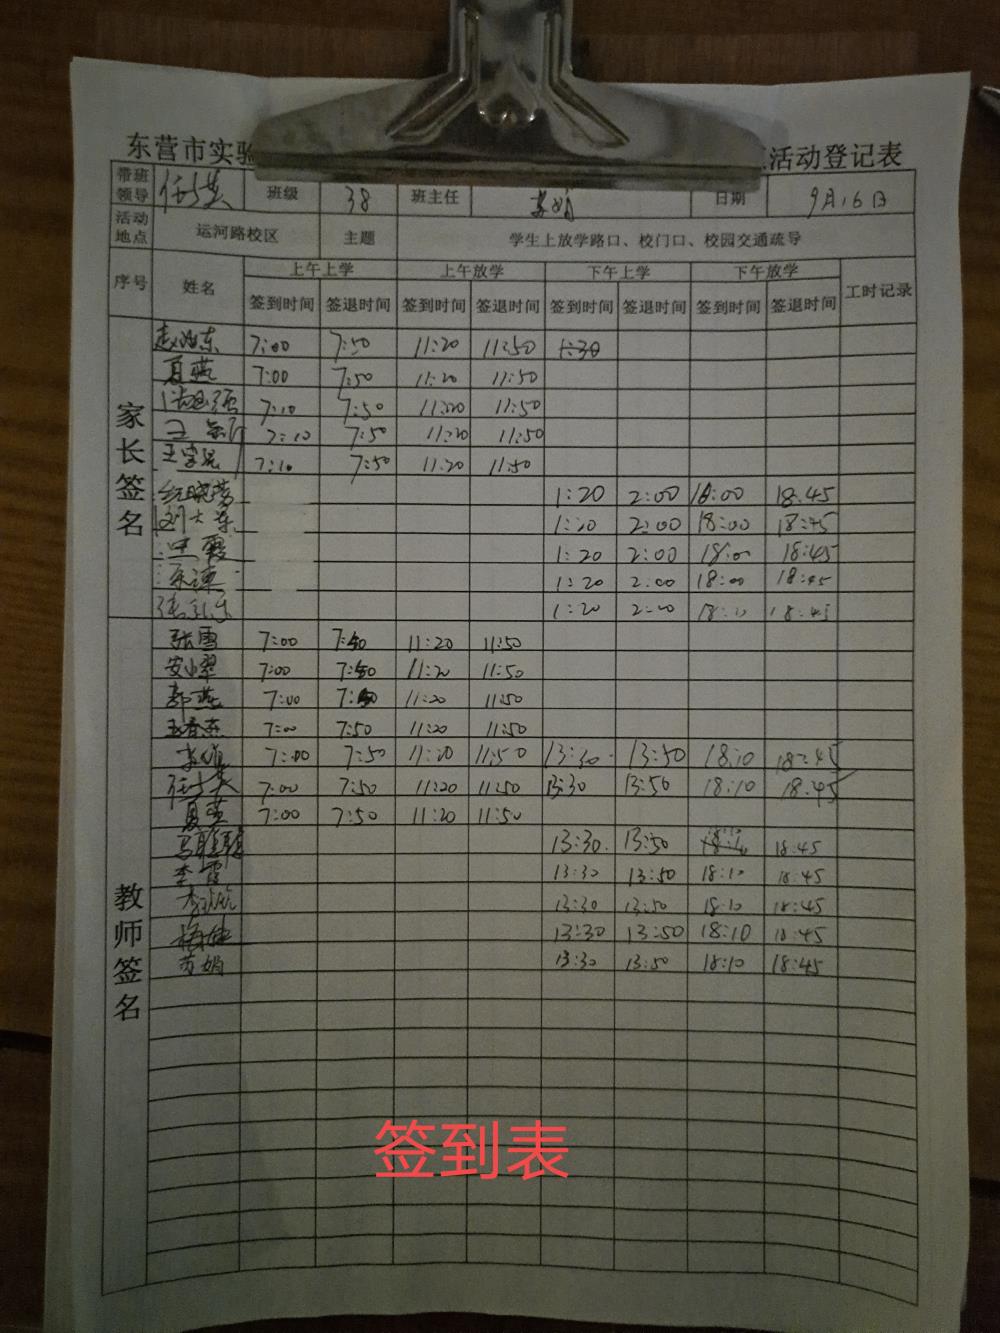 东营市实验 活动登记表
带班领导 任 英 班级 38 班主任 苏娟 日期 9月16日
活动地点 运河路校区 主题 学生上放学路口、校门口、校园交通疏导
序号 姓名 上午上学 上午放学 下午上学 下午放学 工时记录
签到时间 签退时间 签到时间 签退时间 签到时间 签退时间 签到时间 签退时间
家长签名
东 7:00 7:50 11:20 11:50 1:30
夏燕 7:00 7:50 11:20 11:50
7:10 7:50 11:20 11:50
王 7:10 7:50 11:20 11:50
王 7:10 7:50 11:20 11:50
纪晓 1:20 2:00 18:00 18:45
刘大 1:20 2:00 18:00 18:45
霞 1:20 2:00 18:00 18:45
1:20 2:00 18:00 18:45
1:20 2:00 18:45
教师签名
张雪 7:00 7:50 11:20 11:50
安小翠 7:00 7:50 11:20 11:50
郭燕 7:00 7:50 11:20 11:50
王春燕 7:00 7:50 11:20 11:50
李 7:00 7:50 11:20 11:50 13:30 13:50 18:10 18:45
任 英 7:00 7:50 11:20 11:50 13:30 13:50 18:10 18:45
夏燕 7:00 7:50 11:20 11:50
马 13:30 13:50 18:45
李霞 13:30 13:50 18:10 18:45
李 13:30 13:50 18:10 18:45
梅 13:30 13:50 18:10 18:45
苏娟 13:30 13:50 18:10 18:45
签到表